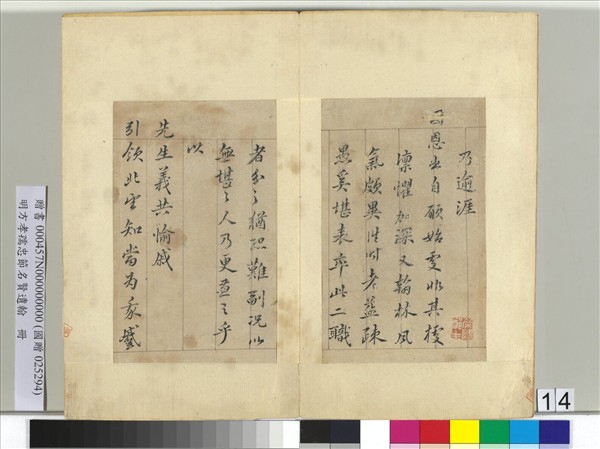 乃逾涯
恩出自始受非其據
凜懼加深又翰林風
氣頗異性老益疎
愚奚堪表率此二職
者分之猶恐難副況以
無堪之人乃更並之乎
以
先生義共愉戚
引領北望知當為我
贈書 000457N000000000 (國贈 025294)
明方孝孺忠節名賢遺翰 冊
14